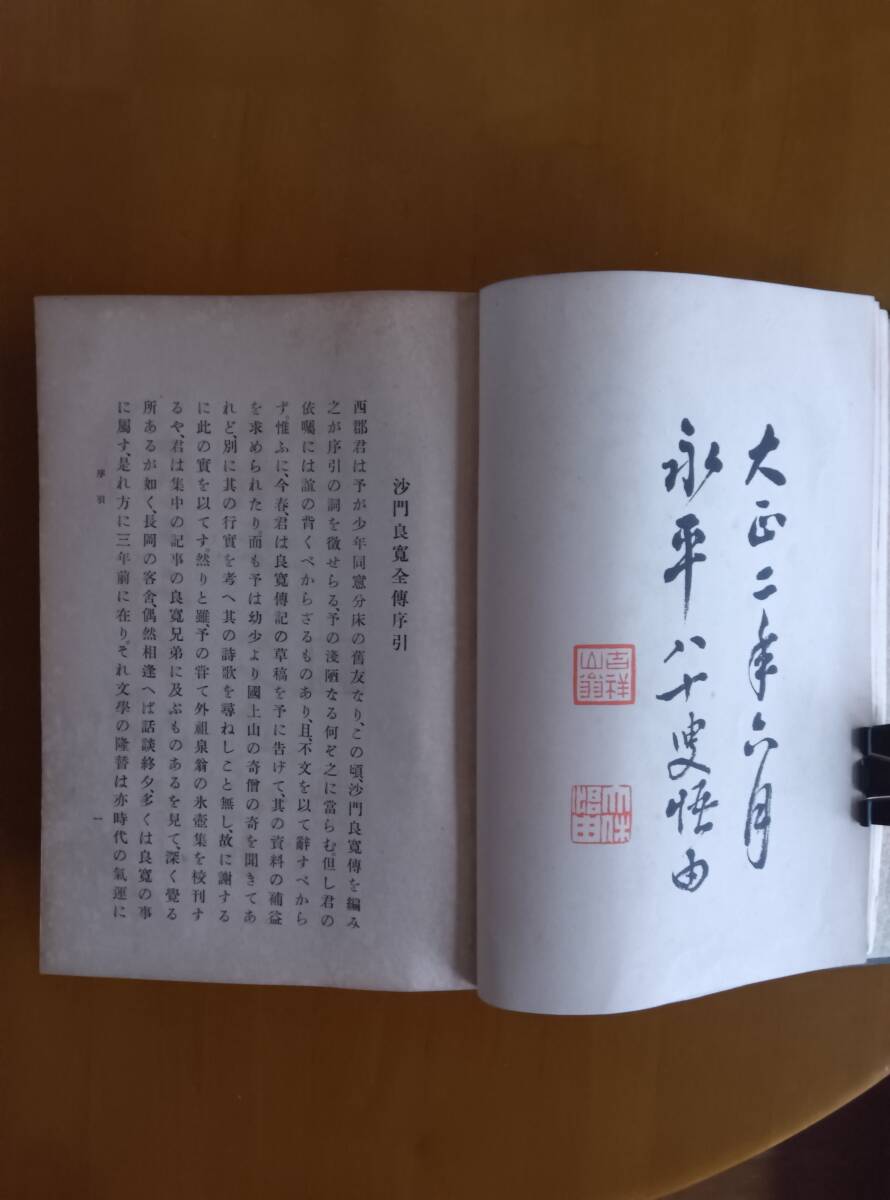 大正二年六月
永平八十叟悟由
吉祥山翁
沙門良寬全傳序引
西郡君は予が少年同窓分床の舊友なり、この頃、沙門良寬傳を編み
之が序引の詞を徵せらる、予の淺陋なる何ぞ之に當らむ。但し君の
依囑には誼の背くべからざるものあり、且、不文を以て辭すべから
ず。惟ふに、今春、君は良寬傳記の草稿を予に告げて、其の資料の補益
を求められたり而も予は幼少より國上山の奇僧の奇を聞きてあ
れど、別に其の行實を考へ其の詩歌を尋ねしこと無し、故に謝する
に此の實を以てす。然りと雖、予の甞て外祖泉翁の氷壺集を校刊す
るや、君は集中の記事の良寬兄弟に及ぶものあるを見て、深く覺る
所あるが如く、長岡の客舍、偶然相逢へば話談終夕、多くは良寬の事
に屬す、是れ方に三年前に在り。それ文學の隆替は亦時代の氣運に
序引
一